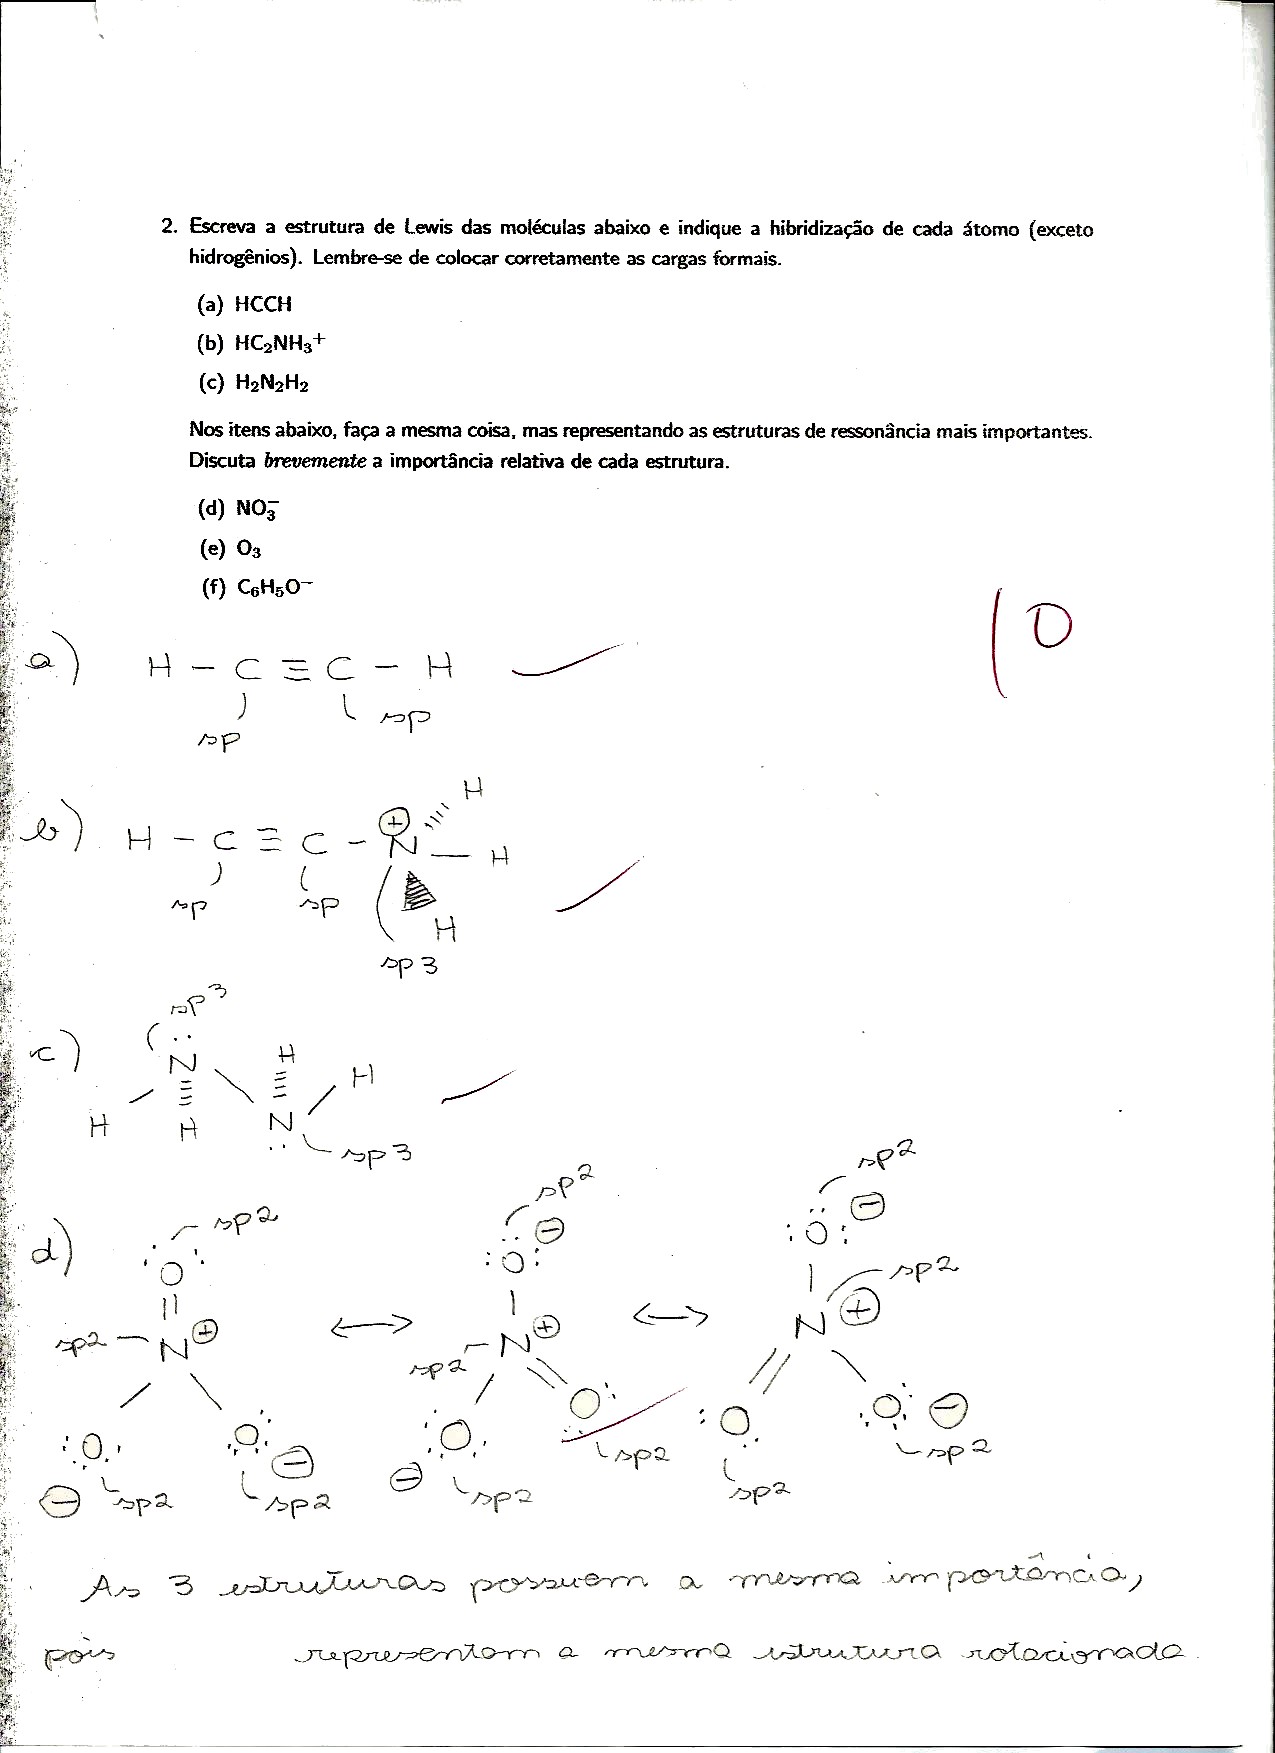 2. Escreva a estrutura de Lewis das moléculas abaixo e indique a hibridização de cada átomo (exceto
hidrogênios). Lembre-se de colocar corretamente as cargas formais.
(a) HCCH
(b) HC₂NH₃⁺
(c) H₂N₂H₂
Nos itens abaixo, faça a mesma coisa, mas representando as estruturas de ressonância mais importantes.
Discuta brevemente a importância relativa de cada estrutura.
(d) NO₃⁻
(e) O₃
(f) C₆H₅O⁻
10
a) H – C ≡ C – H
sp sp
b) H – C ≡ C – N ⊕ H
H
sp sp H
sp3
sp3
c) N H H
H H N
sp3
sp2 sp2 sp2
d) O O ⊖ O ⊖
sp2 N ⊕ ⟷ sp2 N ⊕ ⟷ N ⊕ sp2
O O ⊖ O O O O ⊖
⊖ sp2 sp2 ⊖ sp2 sp2 sp2 sp2
As 3 estruturas possuem a mesma importância,
pois representam a mesma estrutura rotacionada